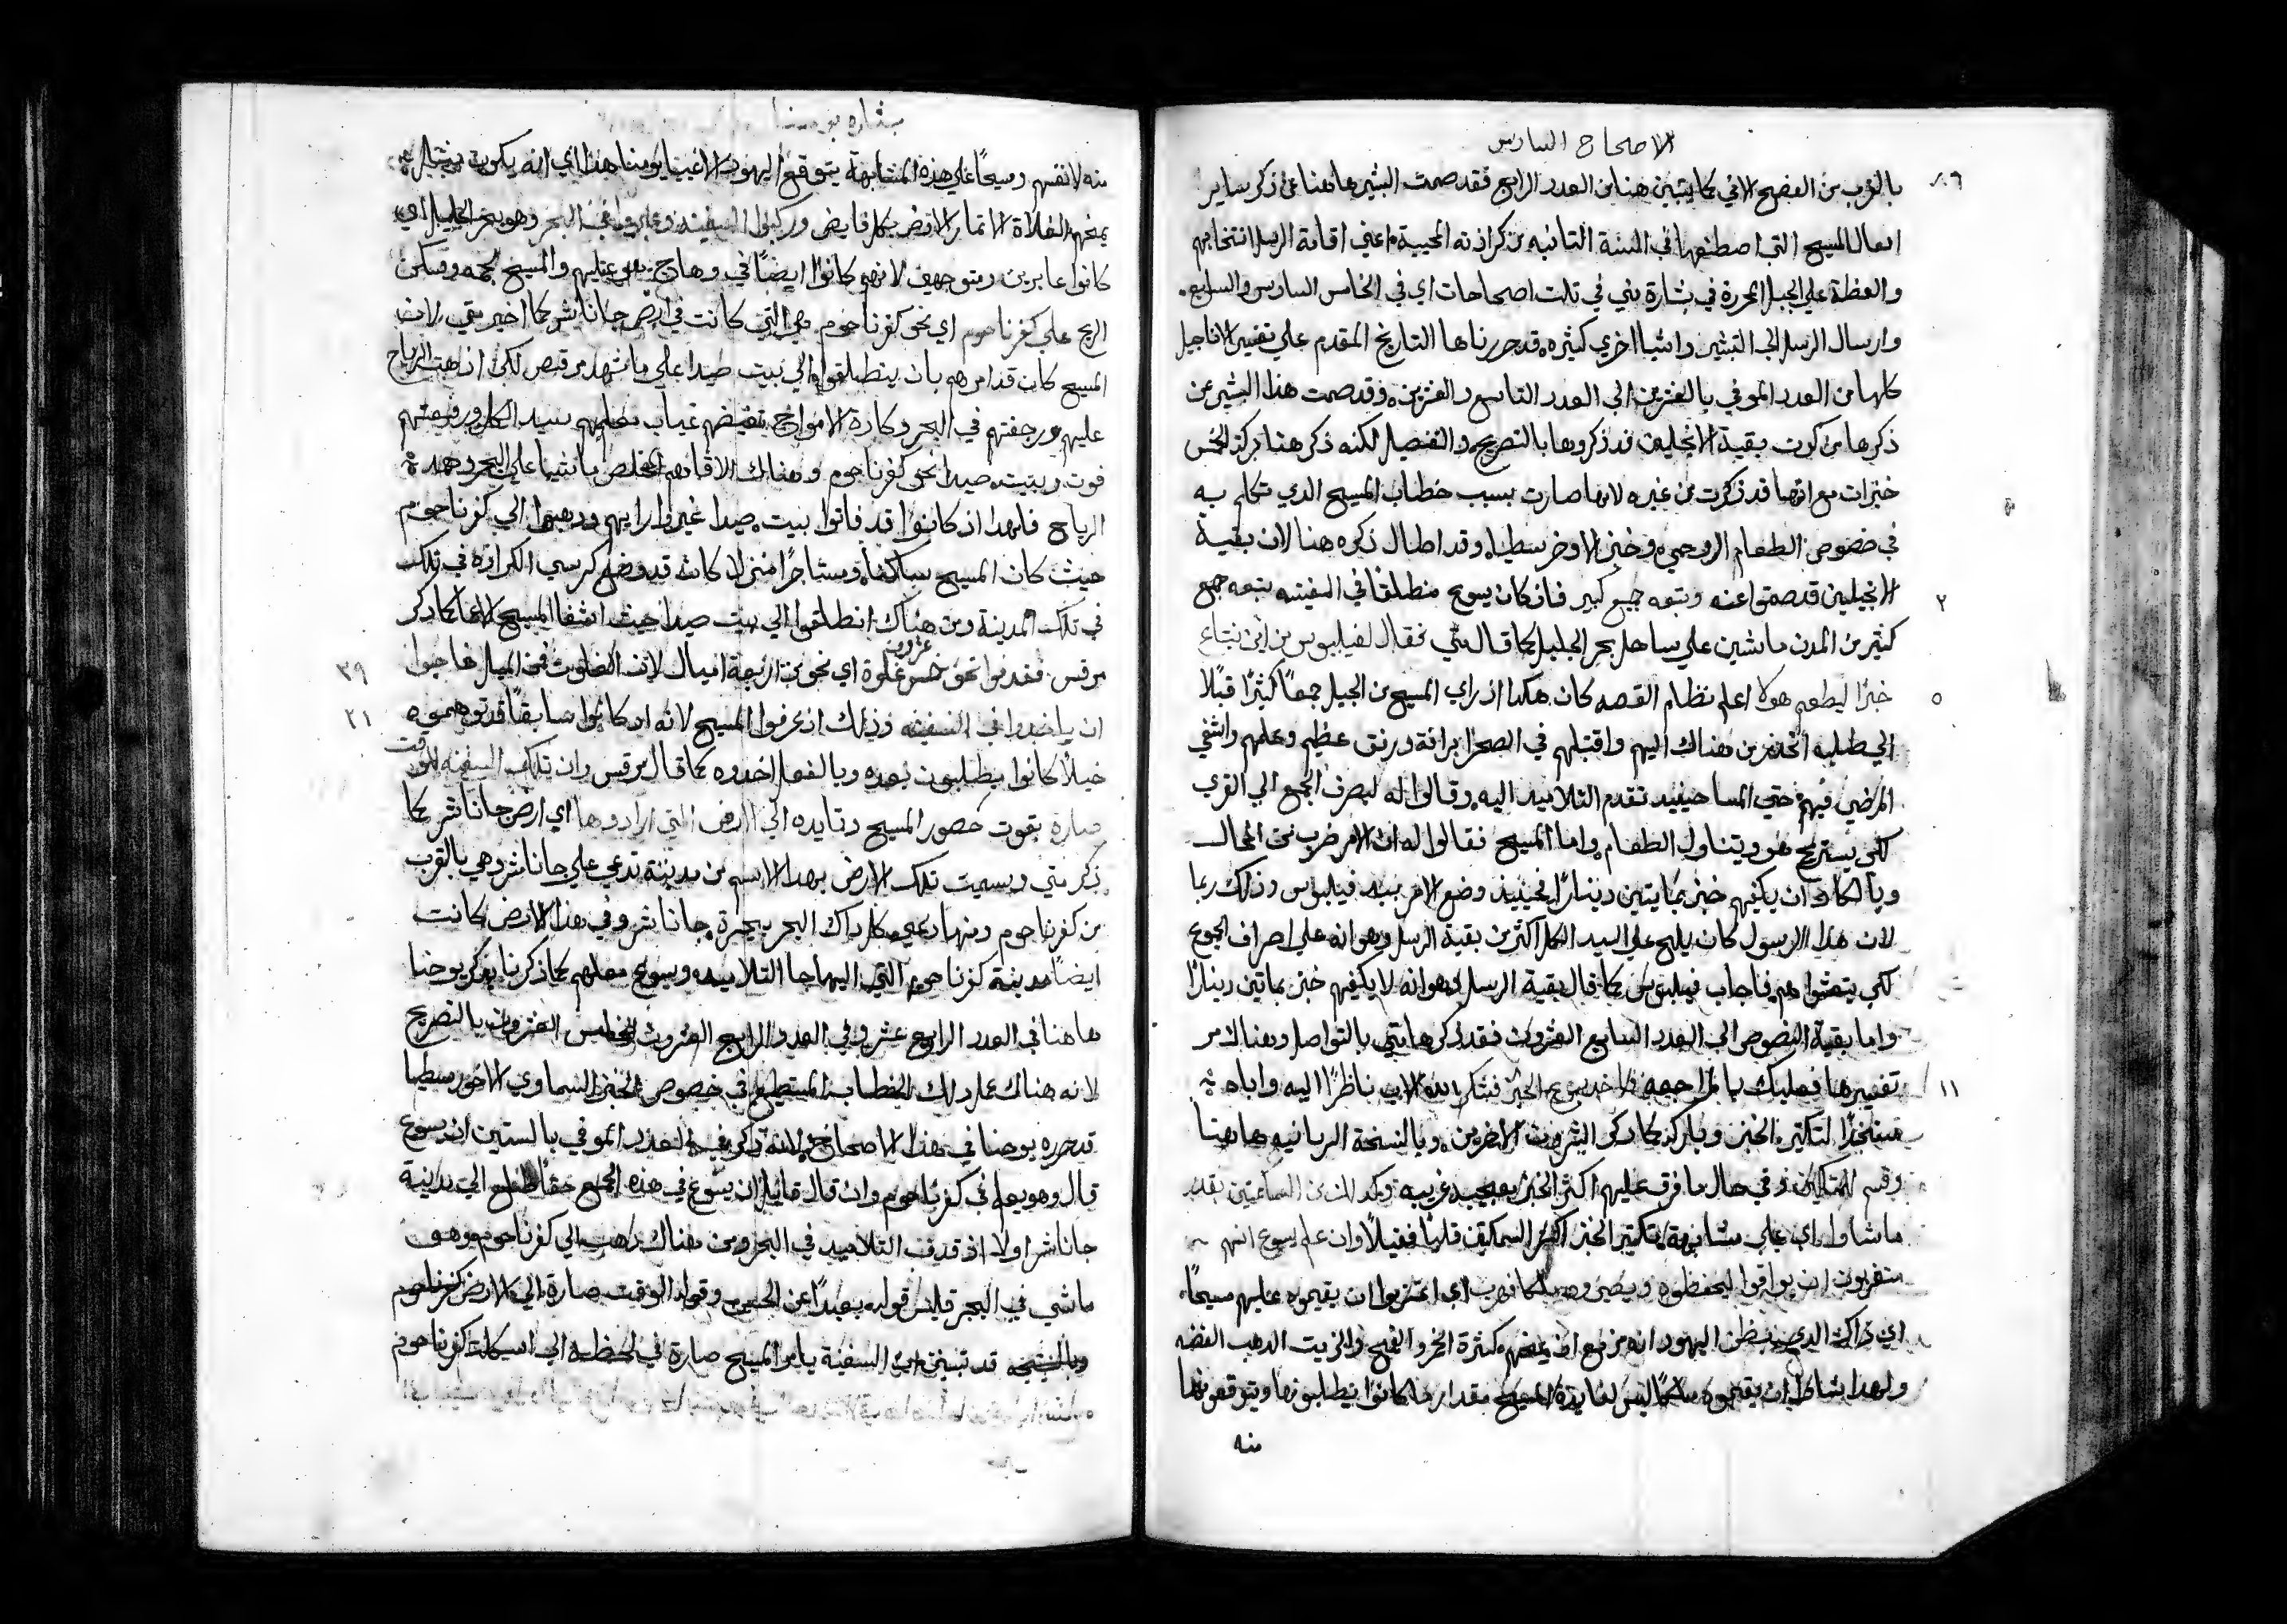 الاصحاح السادس
٨٦
بالقرب من الفصح الاتي كما يتبين هنا من العدد الرابع فقد صمت البشير هاهنا عن ذكر ساير
افعال المسيح التي اصطنعها في السنة الثانيه من كرازته المحيية اعني اقامة الرسل انتخابهم
والعظة علي الجبل المحررة في بشارة متي في ثلث اصحاحات اي في الخامس السادس والسابع.
وارسال الرسل الي التبشير واشيا اخري كثيره قد حررناها التاريخ المقدم علي تفسير الاناجيل
كلها من العدد الموفي بالعشرين الي العدد التاسع والعشرين. وقد صمت هذا البشير عن
ذكرها من كون بقية الانجليين قد ذكروها بالتصريح والتفصيل لكنه ذكر هنا بركة الخمس
خبزات مع انها قد ذكرت من غيره لانها صارت بسبب خطاب المسيح الذي تكلم به
في خصوص الطعام الروحي وخبز الاوخرسطيا وقد اطال ذكره هنا لان بقية
٢
الانجيليين قد صمتوا عنه وتبعه جمع كبير فان كان يسوع منطلقا في السفينه تبعه جمع
كثير من المدن ماشين علي ساحل بحر الجليل كما قال متي فقال لفيلبوس من اين نبتاع
٥
خبزا ليطعم هولا اعلم نظام القصه كان هكذا اذ راي المسيح من الجبل جمعا كثيرا قبلا
الي طلبه انحدر من هناك اليهم واقتبلهم في الصحرا برافة ورفق عظيم وعلمهم واشفي
المرضي فيهم حتي المسا حينيد تقدم التلاميد اليه وقالوا له ليصرف الجمع الي القري
لكي يستريح هو ويتناول الطعام واما المسيح فقالوا له ان الامر ضرب من المحال
وبالكاد ان يكفيهم خبز بمايتين دينارا فحينيذ وضع الامر بيد فيلبوس وذلك ربما
لان هذا الرسول كان يلح علي السيد الكل اكثر من بقية الرسل وهو انه علي اصراف الجموع
لكي يتعشوا هم فاجاب فيلبوس كما قال بقية الرسل وهو انه لا يكفيهم خبز بماتين دينارا
واما بقية النصوص الي العدد السابع العشرون فقد ذكرها متي بالتواصل وهناك مر
١١
تفسيرها فعليك بالمراجعه فاخد يسوع الخبز فشكر الله الاب ناظرا اليه واياه
مستنجدا لتكتير الخبز وباركه كما ذكر البشيرون الاخرين. وبالنسخة السريانيه هاهنا
وقسم للمتكين وفي حال ما فرق عليهم اكثر الخبز بعجيبه غريبه وكدلك من السمكتين بقدر
ما شاوا. اي علي مشابهة تكتير الخبز اكثر السمكتين قليلا فقليلا وان علم يسوع انهم
اي ذاك الدي ينتظرن اليهود انه مزمع ان يمنحهم كثرة الخمر والقمح والزيت الدهب الفضه
ولهدا يشاوا ان يقيموه ملكا ليس لفايدة المسيح مقدار ما كانوا يطلبونها ويتوقعونها
منه
بشاره يوحنا
منه لانفسهم ومسيحا علي هذه المشابهة يتوقع اليهود الاغبيا يومنا هذا اي انه يكون
كانوا عابرين ومتوجهين لانهم كانوا ايضا في
الريح علي كفرناحوم اي نحو كفرناحوم هي التي كانت في ارض جاناشر كما اخبر متي لان
المسيح كان قد امرهم بان ينطلقوا الي بيت صيدا علي ما شهد مرقص لكن اذ هبت الرياح
عليهم ورجفتهم في البحر وكارة الامواج
فوت بيت صيدا نحو كفرناحوم وهناك لاقاهم المخلص ماشيا علي البحر وهمد
الرياح فلهدا اذ كانوا قد فاتوا بيت صيدا غيروا رايهم ودهبوا الي كفرناحوم
حيث كان المسيح ساكنا ومستاجرا منزلا كانه قد وضع كرسي الكرازه في تلك
في تلك المدينة ومن هناك انطلقوا الي بيت صيدا حيث اشفا المسيح الاعما كما ذكر
عشرون
٣٩
مرقس. فقدموا نحو خمس غلوة اي نحو من اربعة اميال لان
٢١
ان ياخدوا في السفينه وذلك اذ عرفوا المسيح لانه اد كانوا سابقا قد توهموه
خيالا كانوا يطلبون بعده وبالفعل اخدوه كما قال مرقس وان تلك السفينه للوقت
صارة بقوت حضور المسيح وتايده الي الارض التي ارادوها اي ارض جاناشر كما
ذكر متي وسميت تلك الارض بهدا الاسم من مدينة تدعي علي جاناشر وهي بالقرب
من كفرناحوم ومنها دعي كل داك البحر بحيرة جاناشر وفي هذا الارض كانت
ايضا مدينة كفرناحوم التي اليها جا التلاميد ويسوع معلمهم كما ذكرنا بذكر يوحنا
هاهنا في العدد الرابع عشر وفي العدد الرابع العشرون الخامس العشرون بالتصريح
لانه هناك عمل دلك الخطاب المستطيع في خصوص الخبز السماوي الاخورسطيا
قد حرره يوحنا في هذا الاصحاح لانه ذكر في العدد الموفي بالستين ان يسوع
قال وهو يعلم في كفرناحوم وان قال قايلا ان يسوع في هذه الجمع حقا طلع الي مدنية
جاناشر اولا اذ قدف التلاميد في البحر ومن هناك ذهب الي كفرناحوم وهو
ماشي في البحر فليس قوله بعيدا عن الحق وقوله الوقت صارة الي الارض كفرناحوم
وبالنتيجه قد تبين ان السفينة بامر المسيح صارة في لحظه الي اسكلة كفرناحوم